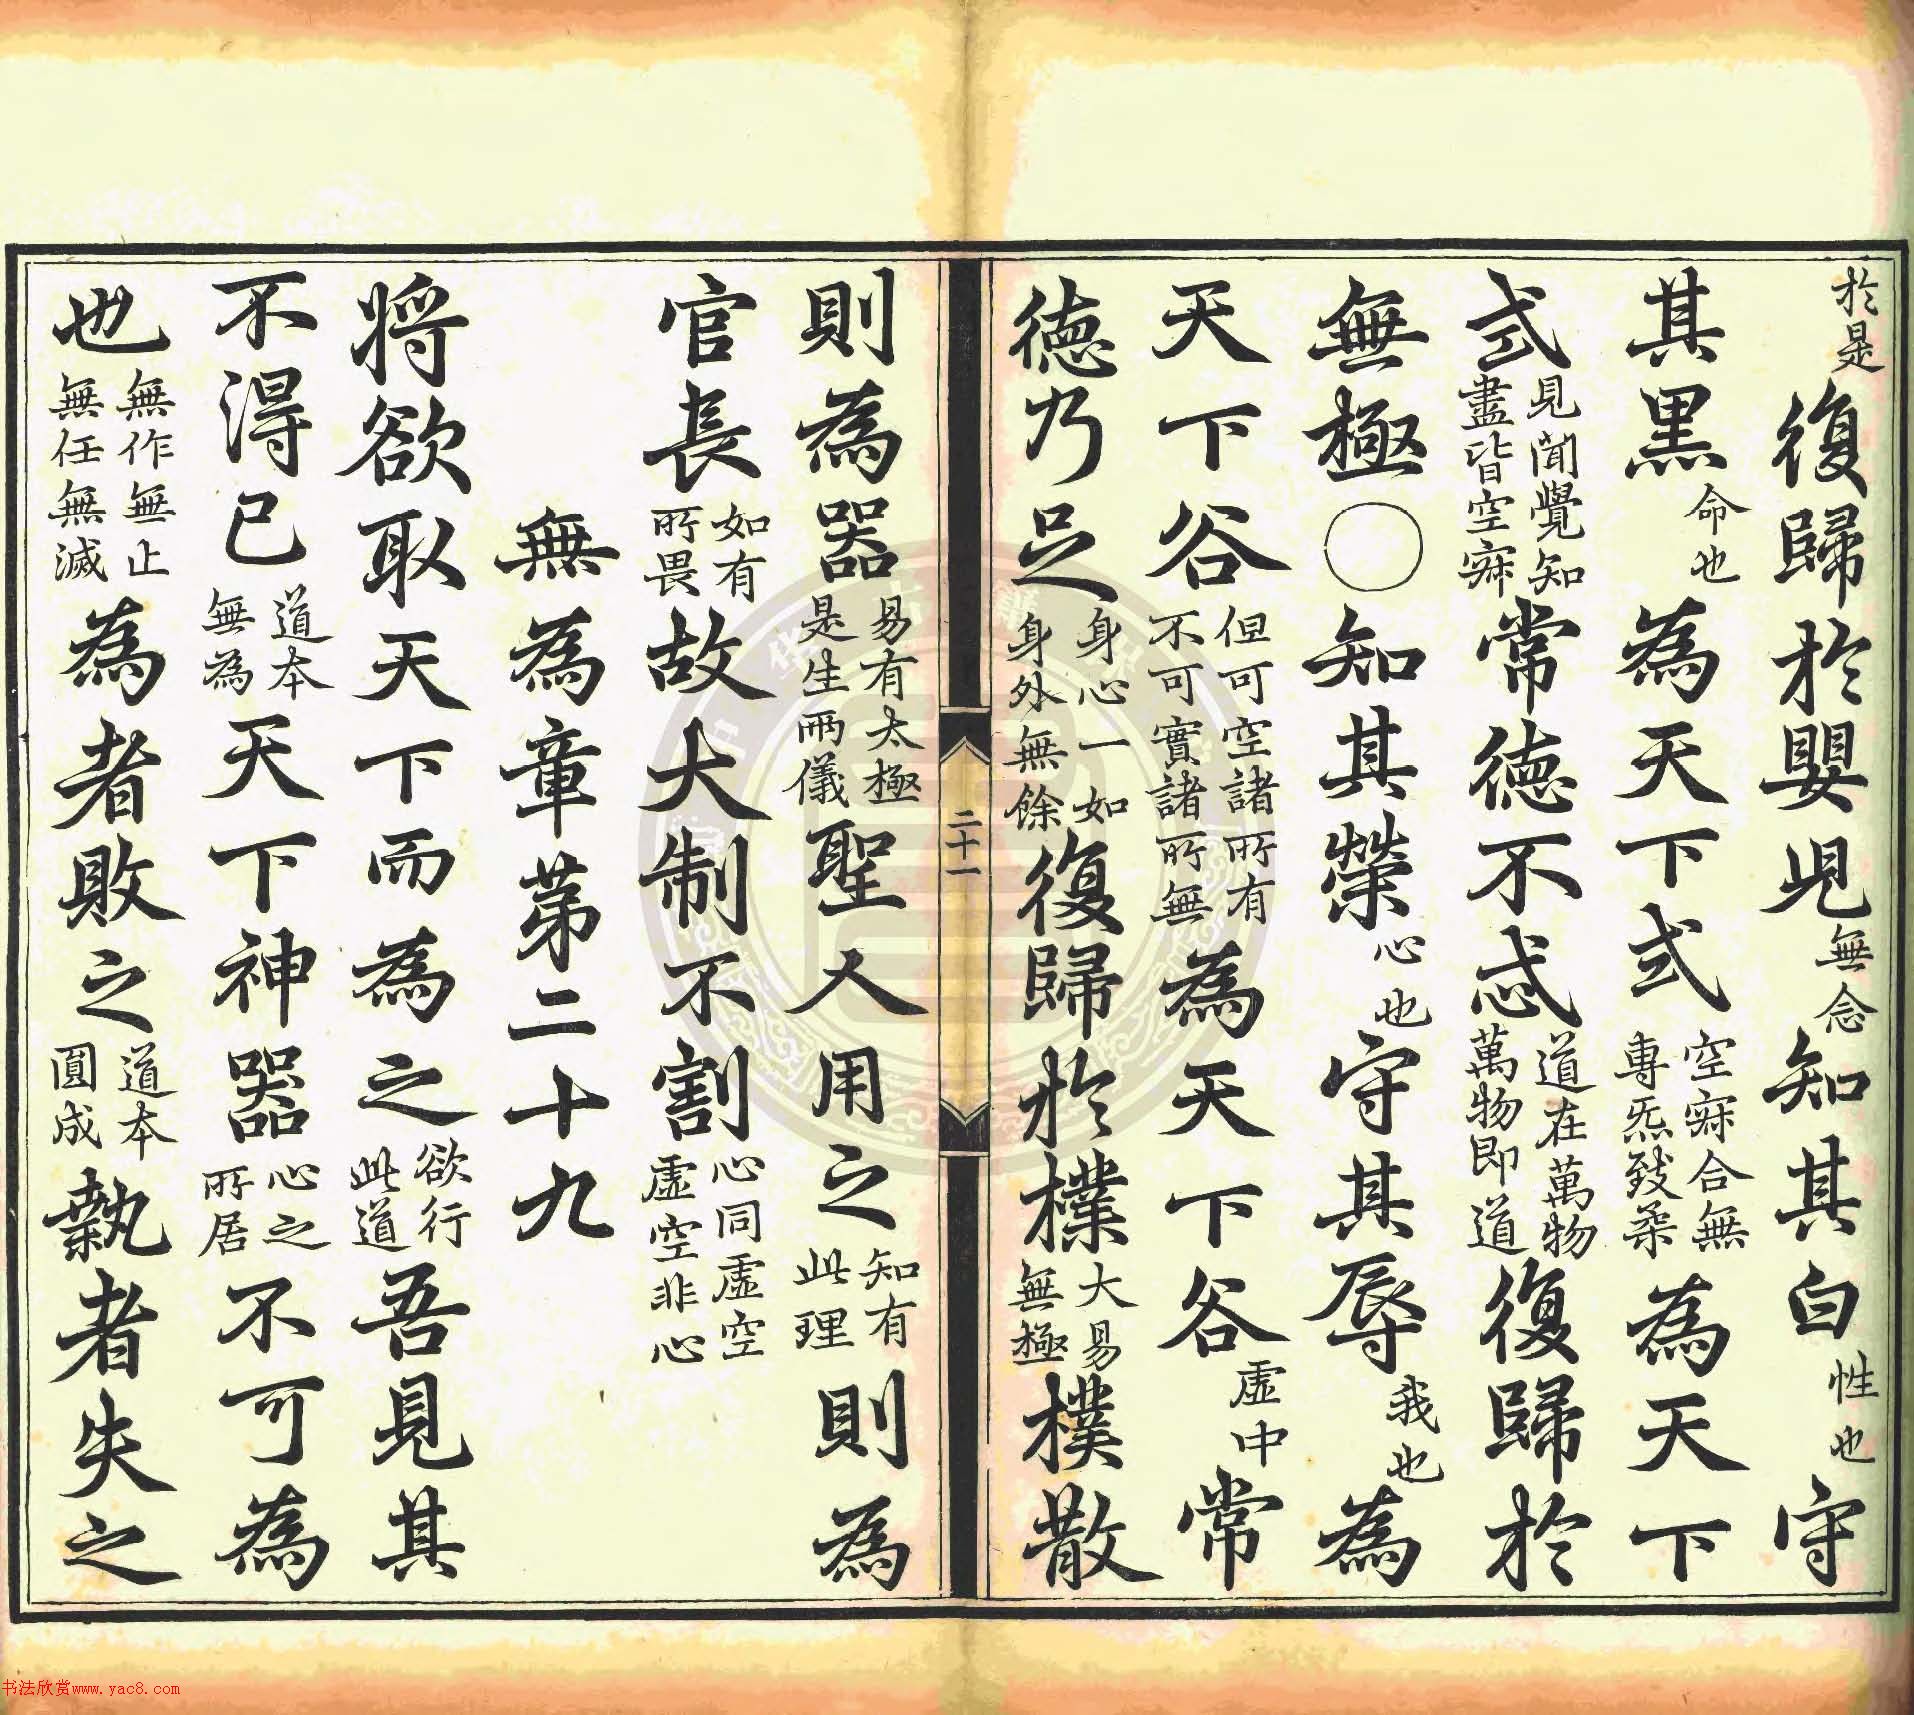 於是復歸於嬰児無念知其白性也守
其黑命也為天下式空寂合無專炁致柔為天下
式見聞覺知盡皆空寂常德不忒道在萬物萬物即道復歸於
無極○知其榮心也守其辱我也為
天下谷但可空諸所有不可實諸所無為天下谷虛中常
德乃足身心一如身外無餘復歸於樸大易無極樸散
二十一
則為器易有太極是生兩儀聖人用之知有此理則為
官長如有所畏故大制不割心同虛空虛空非心
無為章第二十九
將欲取天下而為之欲行此道吾見其
不得已道本無為天下神器心之所居不可為
也無作無止無任無滅為者敗之道本圓成執者失之
书法欣赏www.yac8.com